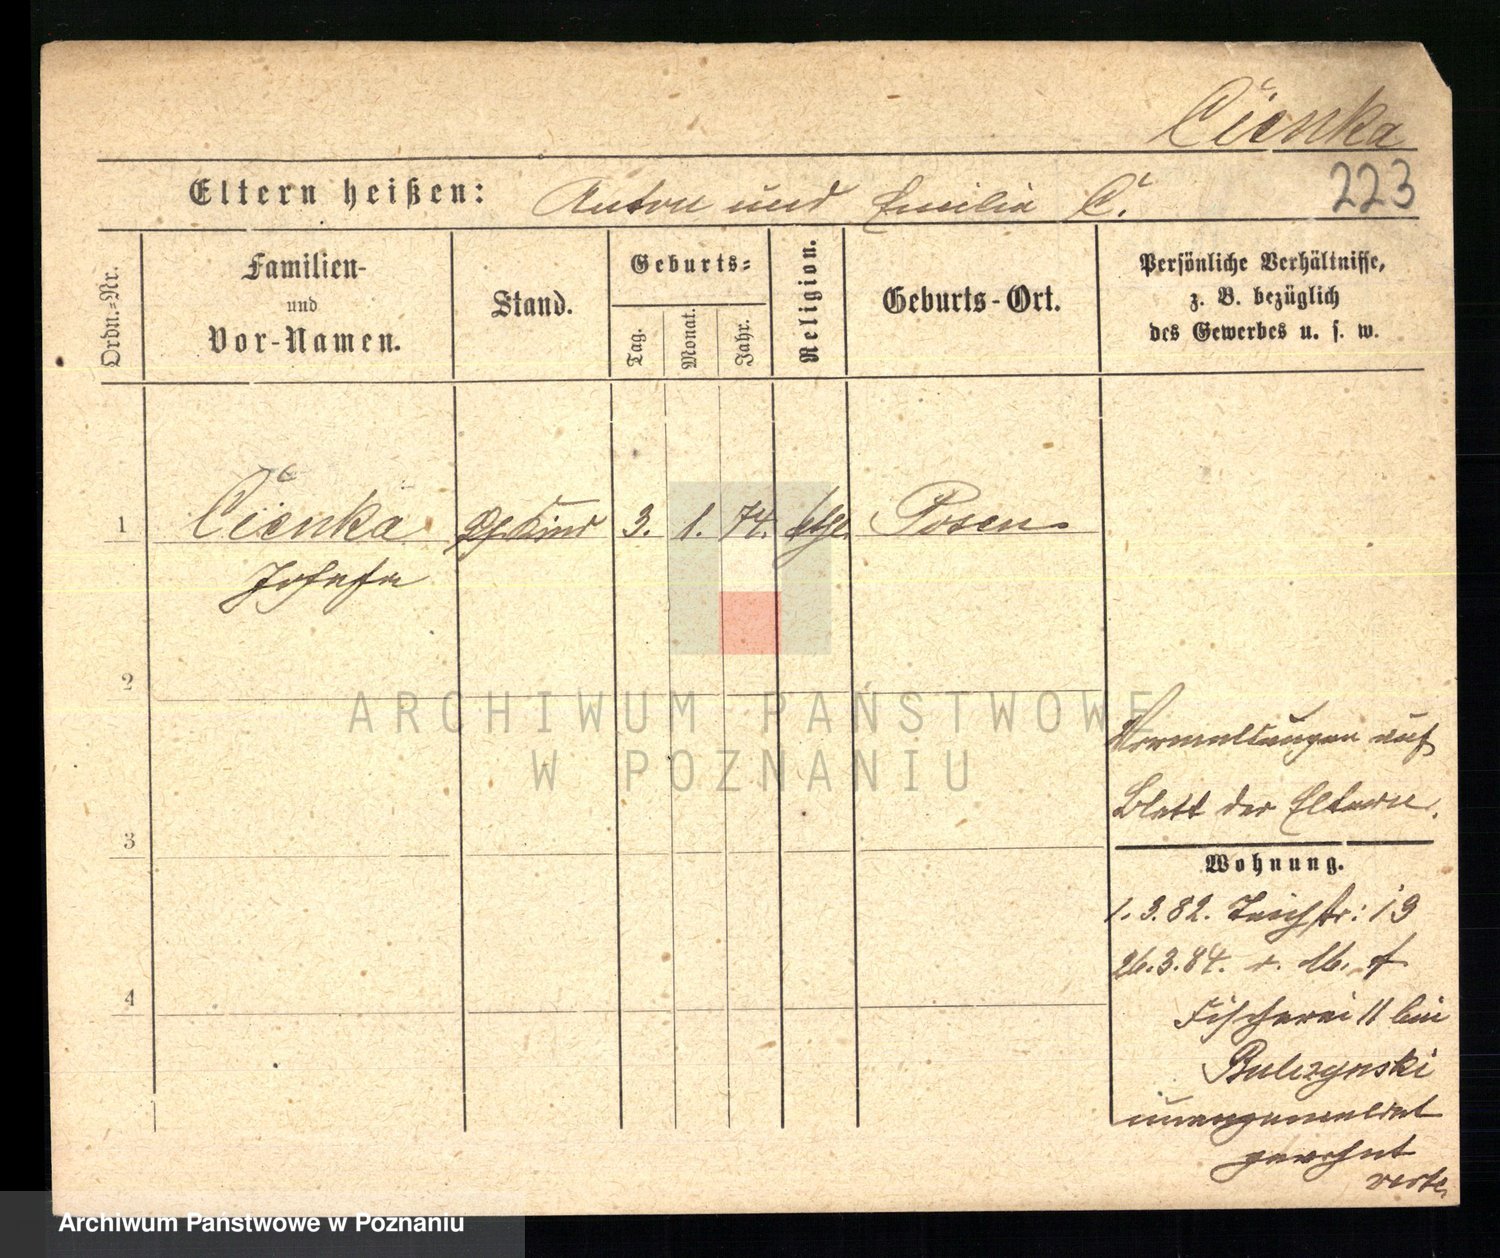 Cienka
223
Eltern heißen: Anton und Emilia C.
Ordn.-Nr.
Familien-
und
Vor-Namen.
Stand.
Geburts-
Tag.
Monat.
Jahr.
Religion.
Geburts-Ort.
Persönliche Verhältnisse,
z. B. bezüglich
des Gewerbes u. s. w.
1 Cienka Kind 3. 1. 74. kthl. Posen
Josefa
2
3
4
auf
Blatt der Eltern.
Wohnung.
1.3.82. Teichstr: 19
26.3.84.
Fischerei 11 bei
unangemeldet
gewohnt
ARCHIWUM PAŃSTWOWE
W POZNANIU
Archiwum Państwowe w Poznaniu